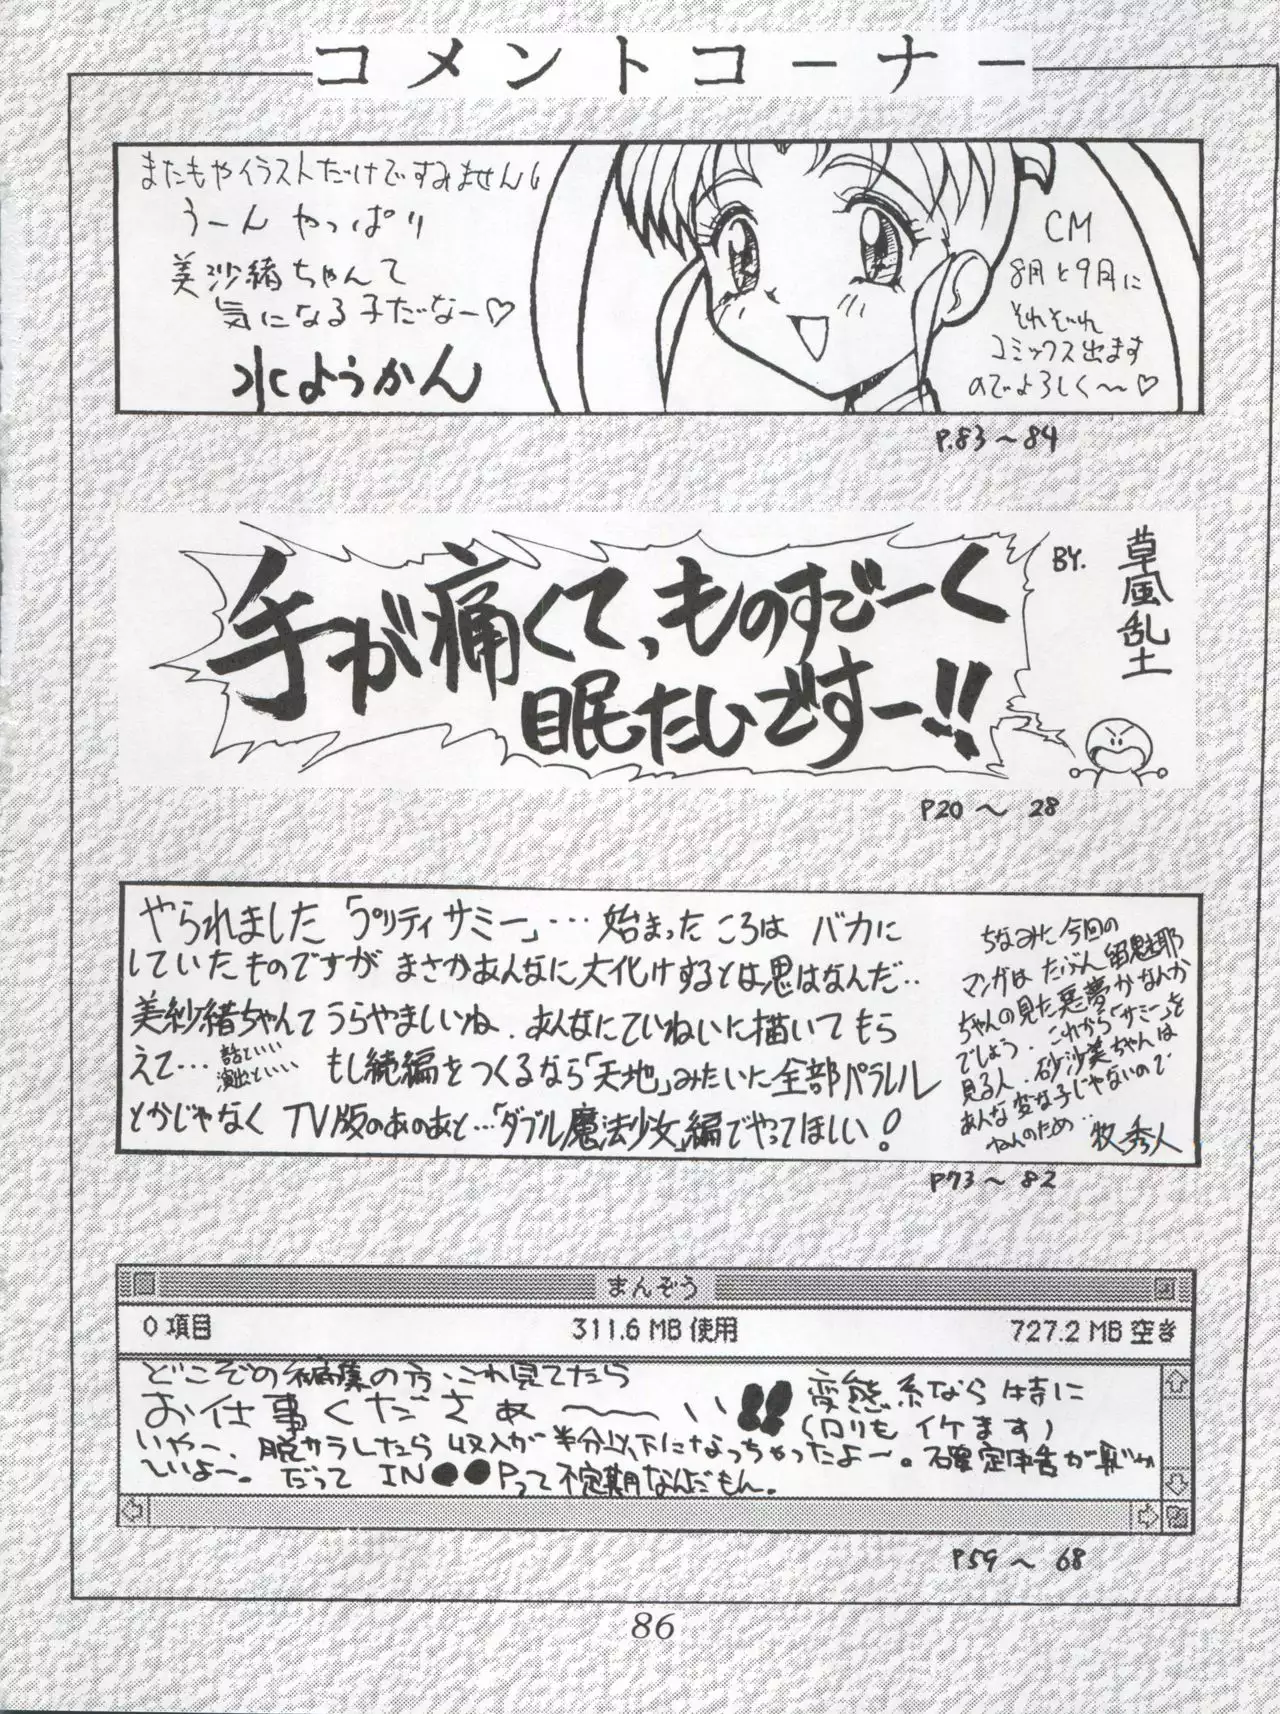 コメントコーナー
またもやイラストだけですみません
うーん やっぱり
美沙緒ちゃんて
気になる子だなー♡
水ようかん
CM
8月と9月に
それぞれ
コミックス出ます
のでよろしく〜〜♡
P.83〜84
手が痛くて、ものすごーく
眠たいですー!!
BY.
草風乱土
P20〜28
やられました「プリティサミー」…始まったころは バカに
していたものですが まさかあんなに大化けするとは思はなんだ‥
美紗緒ちゃんてうらやましいね、あんなにていねいに描いてもら
えて… 話といい
演出といい
もし続編をつくるなら「天地」みたいに全部パラレル
とかじゃなく TV版のあのあと…「ダブル魔法少女」編でやってほしい!
ちなみに今回の
マンガはたぶん留魅耶
ちゃんの見た悪夢かなんか
でしょう。これから「サミー」を
見る人、砂沙美ちゃんは
あんな変な子じゃないので
ねんのため‥
牧秀人
P73〜82
まんぞう
0 項目
311.6 MB 使用
727.2 MB 空き
どこぞの編集の方、これ見てたら
お仕事くださぁ〜〜い!!
変態系なら特に
(ロリもイケます)
いやー、脱サラしたら収入が半分以下になっちゃったよー。確定申告が
いよー。だって IN●●Pって不定期なんだもん。
P59〜68
86